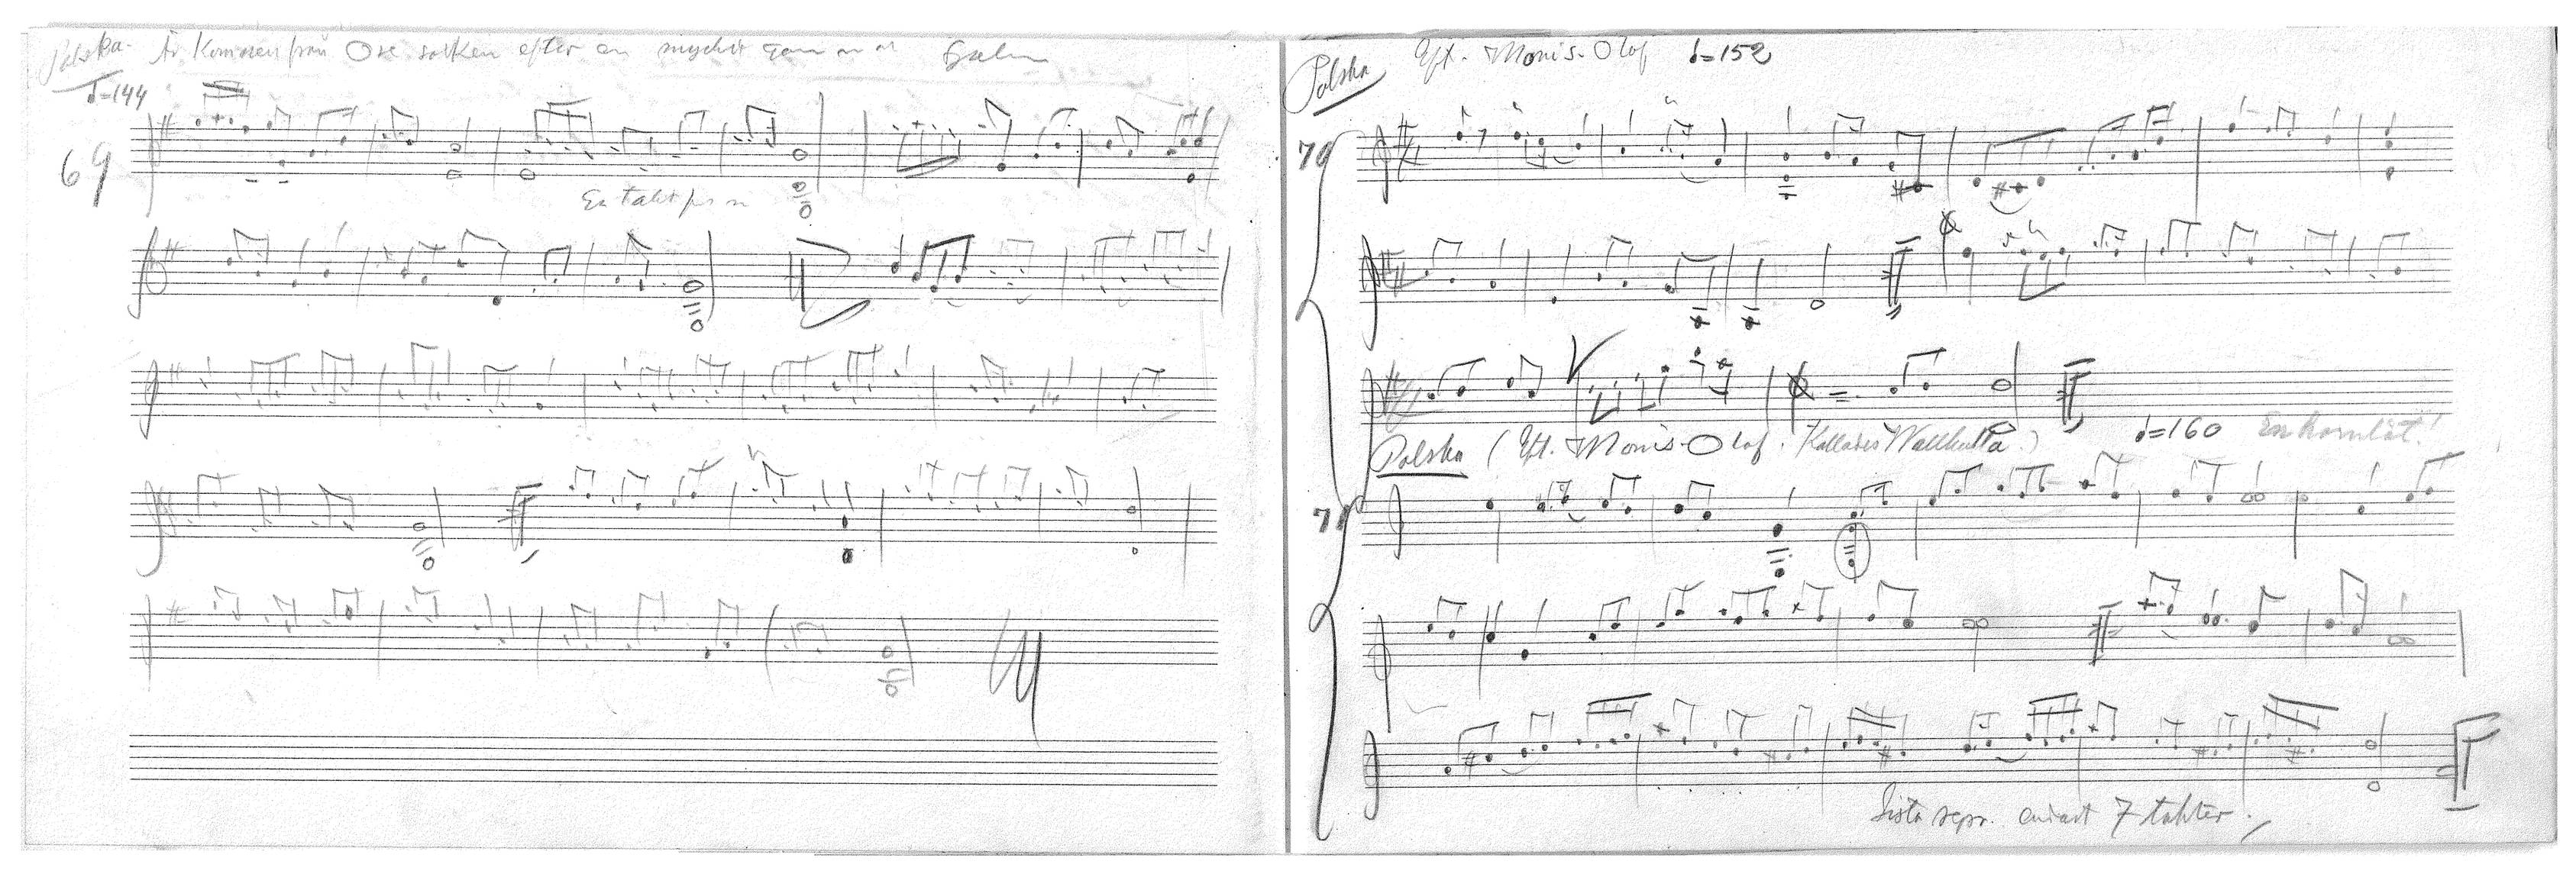 Polska. Är kommen från Ore socken efter en mycket gammal
♩=144
69
En takt
Polska Eft. Monis-Olof ♩=152
70
Polska (Eft. Monis-Olof. Kallades Wallkulla.) ♩=160 En hornlåt!
71
Sista repr. endast 7 takter.